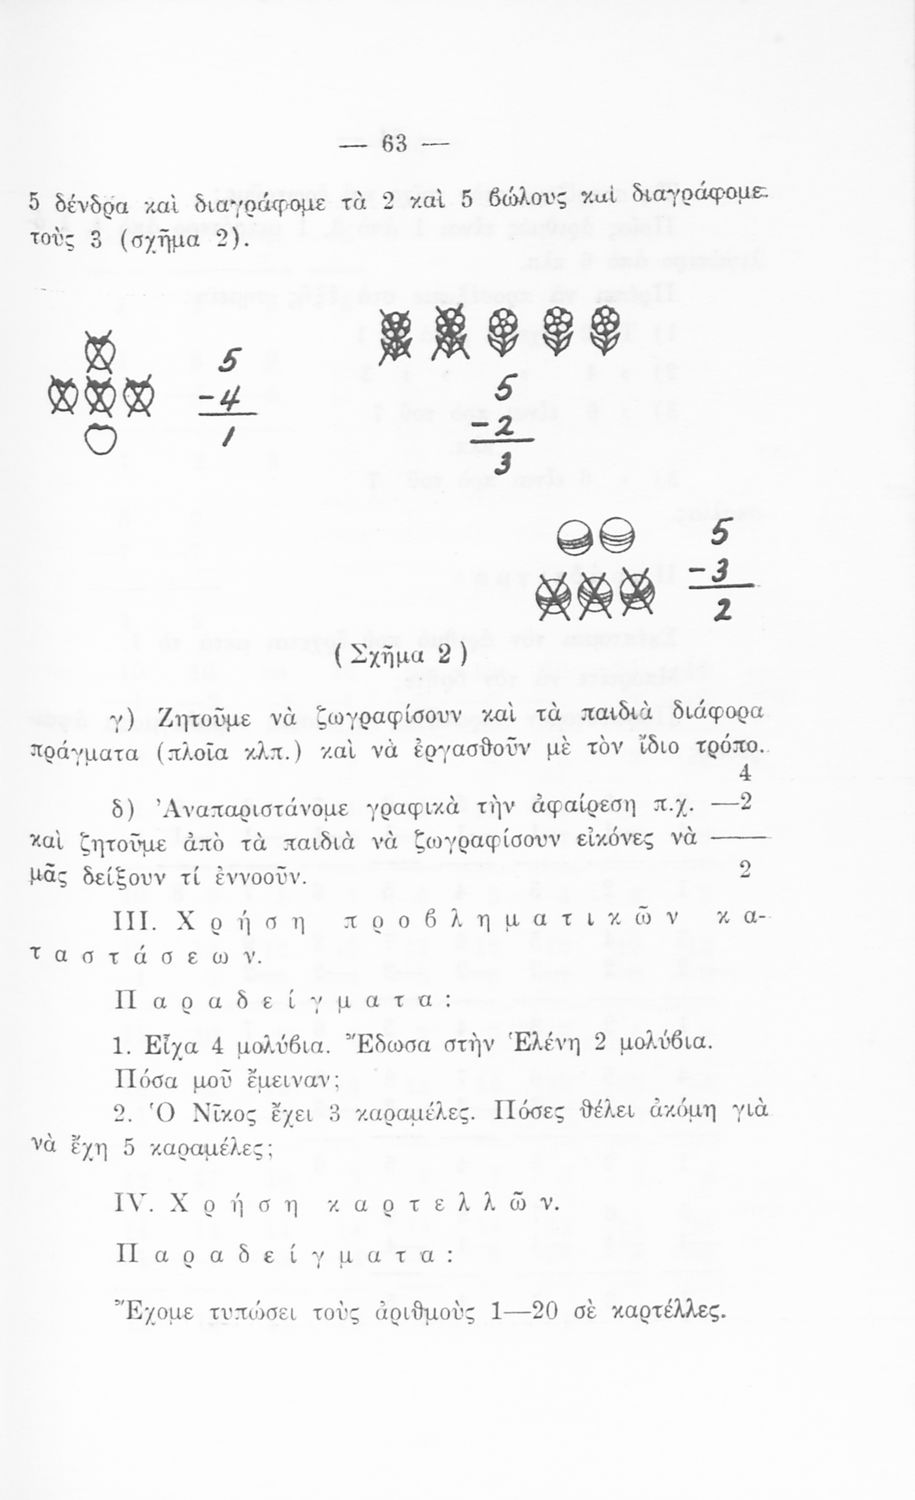 — 63 —
5 δένδρα καὶ διαγράφομε τὰ 2 καὶ 5 βώλους καὶ διαγράφομε
τοὺς 3 (σχῆμα 2).
5
-4
1
5
-2
3
5
-3
2
( Σχῆμα 2 )
γ) Ζητοῦμε νὰ ζωγραφίσουν καὶ τὰ παιδιὰ διάφορα
πράγματα (πλοῖα κλπ.) καὶ νὰ ἐργασθοῦν μὲ τὸν ἴδιο τρόπο.
4
δ) Ἀναπαριστάνομε γραφικὰ τὴν ἀφαίρεση π.χ. —2
καὶ ζητοῦμε ἀπὸ τὰ παιδιὰ νὰ ζωγραφίσουν εἰκόνες νὰ ——
μᾶς δείξουν τί ἐννοοῦν. 2
III. Χρήση προβληματικῶν κα-
ταστάσεων.
Παραδείγματα:
1. Εἶχα 4 μολύβια. Ἔδωσα στὴν Ἑλένη 2 μολύβια.
Πόσα μοῦ ἔμειναν;
2. Ὁ Νῖκος ἔχει 3 καραμέλες. Πόσες θέλει ἀκόμη γιὰ
νὰ ἔχη 5 καραμέλες;
IV. Χρήση καρτελλῶν.
Παραδείγματα:
Ἔχομε τυπώσει τοὺς ἀριθμοὺς 1—20 σὲ καρτέλλες.